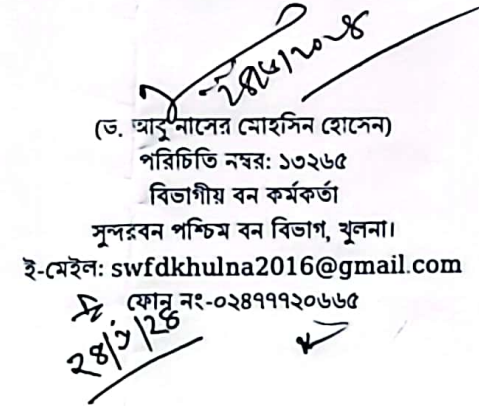 (ড. আবু নাসের মোহসিন হোসেন)
পরিচিতি নম্বর: ১৩২৬৫
বিভাগীয় বন কর্মকর্তা
সুন্দরবন পশ্চিম বন বিভাগ, খুলনা।
ই-মেইল: swfdkhulna2016@gmail.com
ফোন নং-০২৪৭৭৭২০৬৬৫